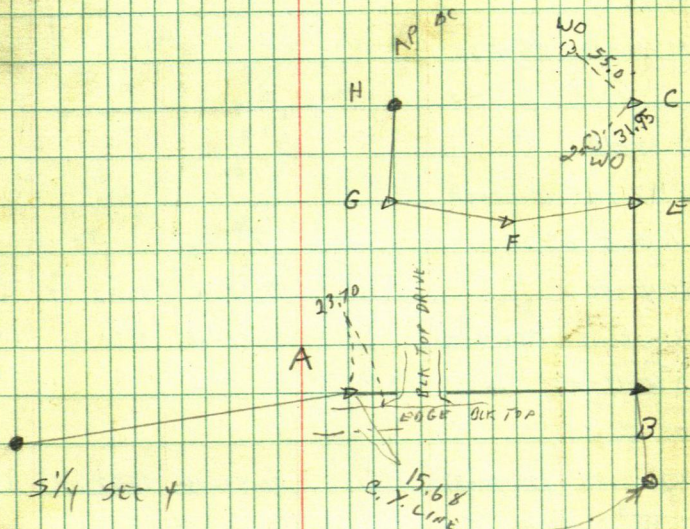 WO
55.0
H
C
31.95
WO
G
E
F
23.70
BLK TOP DRIVE
A
EDGE BLK TOP
B
S 1/4 SEC 4
15.68
LINE